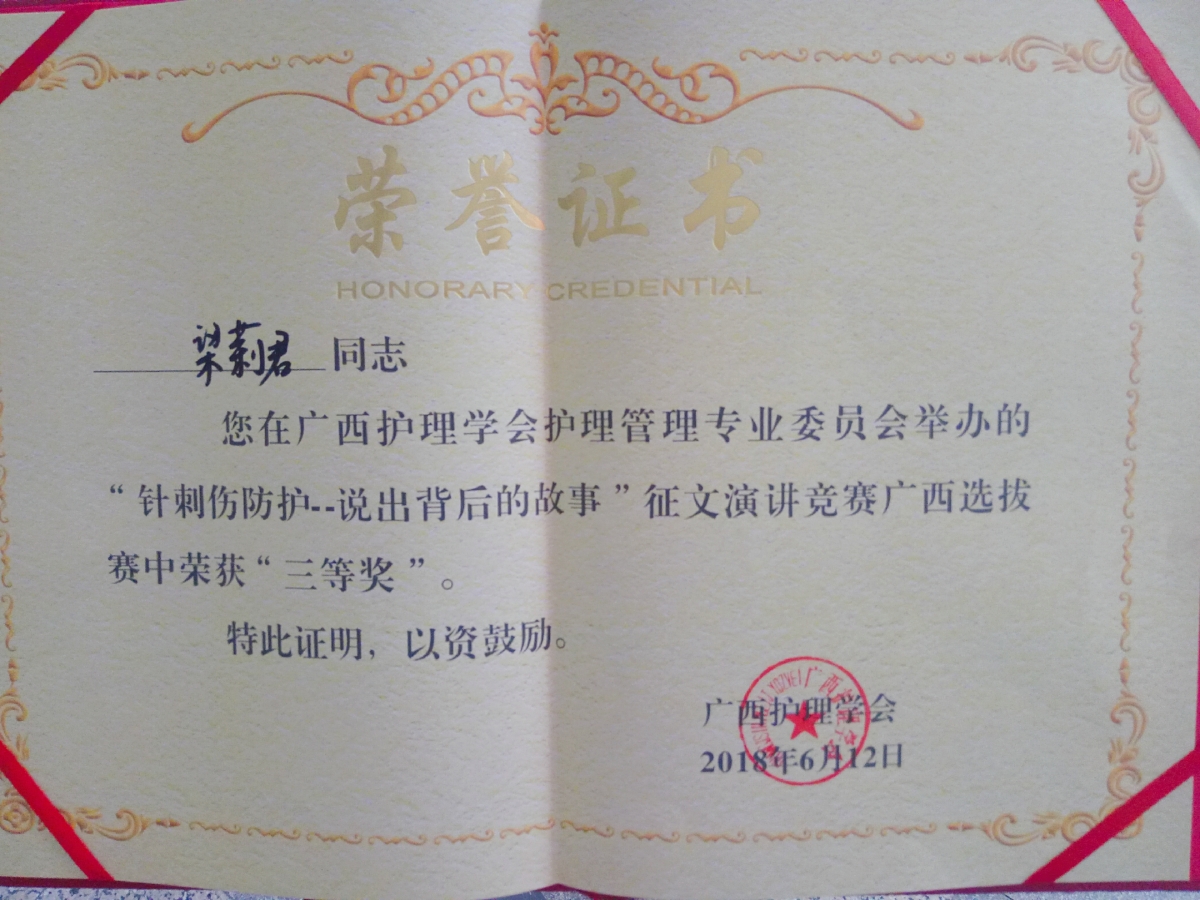 荣誉证书
HONORARY CREDENTIAL
梁莉君 同志
您在广西护理学会护理管理专业委员会举办的
“针刺伤防护--说出背后的故事”征文演讲竞赛广西选拔
赛中荣获“三等奖”。
特此证明，以资鼓励。
广西护理学会
2018年6月12日